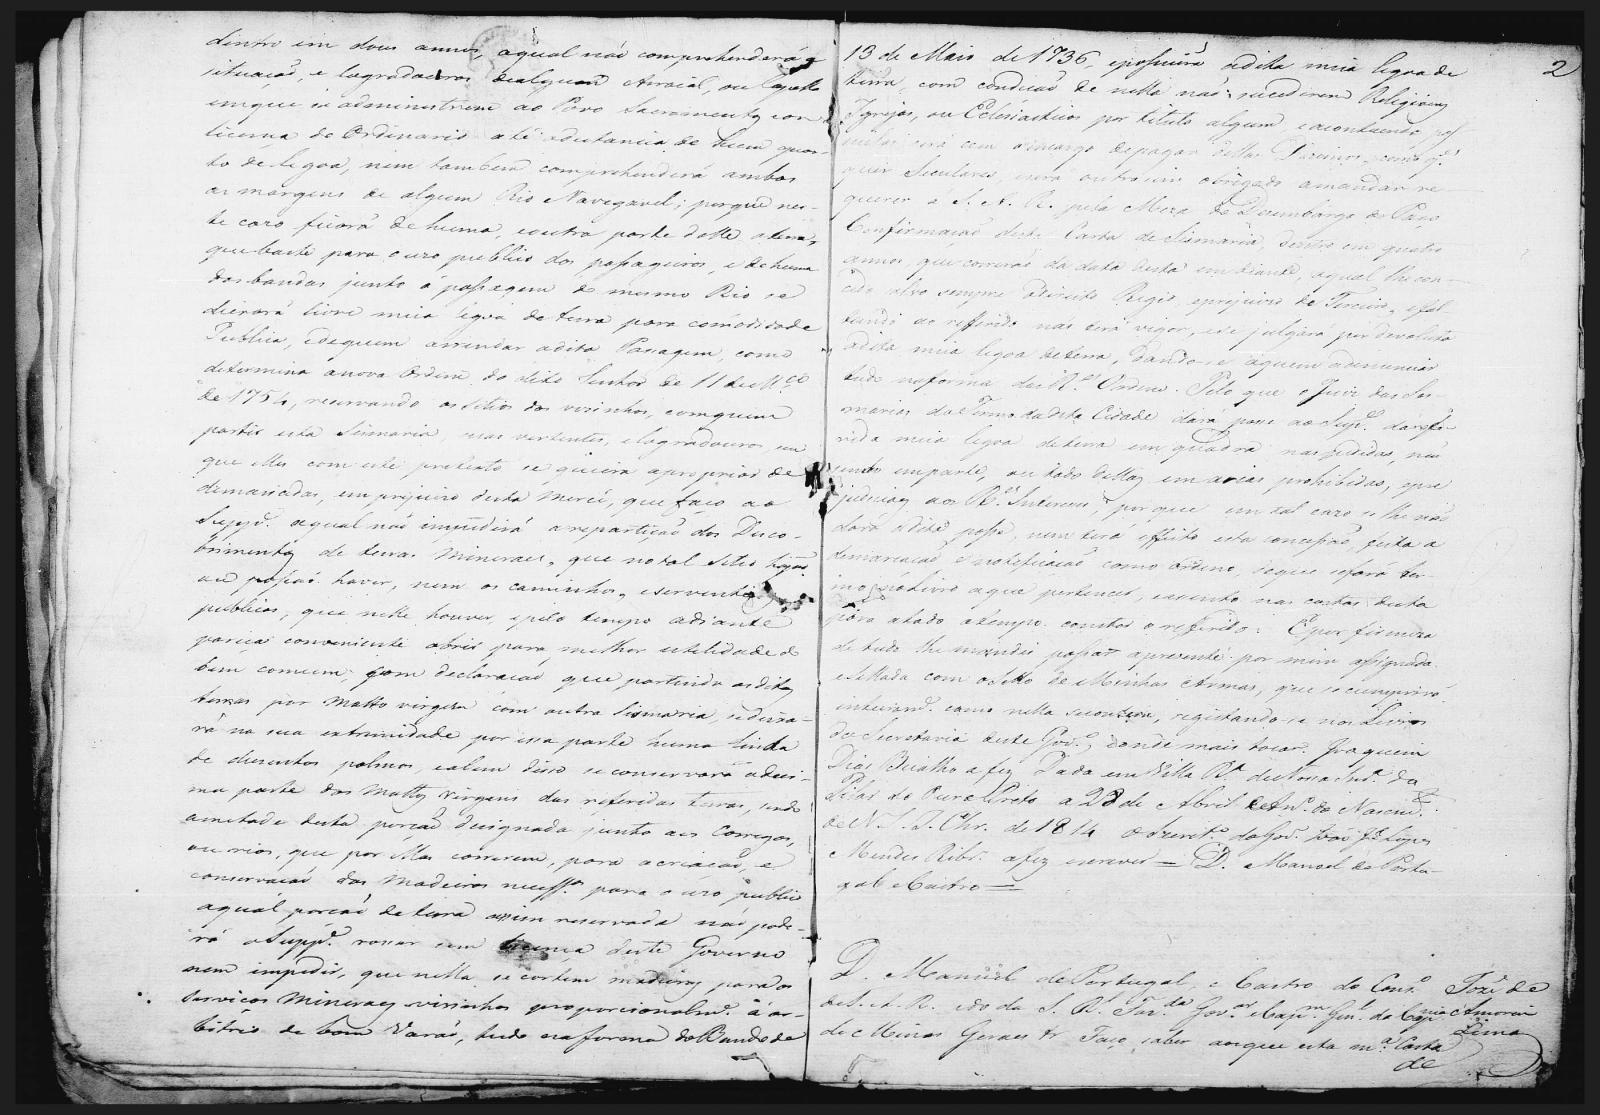 dentro em dous annos, aqual não comprehenderá a
situação, e logradouros dealgum Arraial, ou Capella
emque se administrem ao Povo Sacramentos com
licença do Ordinario até adistancia de hum quar-
to de legoa, nem tambem comprehenderá ambas
as margens de algum Rio Navegavel; porque nes-
te cazo ficará de huma, e outra parte delle a terra,
que baste para o uzo publico dos passageiros, e de huma
das bandas junto a passagem do mesmo Rio se
deixará livre meia legoa de terra para comodidade
Publica, e dequem arrendar adita Passagem, como
determina a nova Ordem do dito Senhor de 11 de M.ço
de 1754, reservando os sitios dos vizinhos, comquem
partir esta Sismaria, suas vertentes, e logradouros, sem
que elles com este pretexto se queirão apropriar de
demaziadas, em prejuizo desta Mercê, que faço ao
Supp.e aqual não impedirá a repartição dos Desco-
brimentos de terras Mineraes, que no tal sitio hajão
ou possão haver, nem os caminhos, e serventias
publicas, que nelle houver, e pelo tempo adiante
pareça conveniente abrir para melhor utilidade do
bem comum; com declaração que partindo as ditas
terras por Matto virgem com outra Sismaria, sedeixa-
rá na sua extremidade por essa parte huma linda
de duzentos palmos, e alem disso se conservará a deci-
ma parte dos Mattos Virgens das referidas terras, sendo
ametade desta porção designada junto aos Corregos,
ou rios, que por ellas correrem, para a criação, e
conservação das Madeiras necess.as para o uzo publico
aqual porção de terra assim reservada não pode-
rá o Supp.e rossar sem licença deste Governo
nem impedir, que nella se cortem madeiras para os
serviços Mineraes vizinhos proporcionalm.e á ar-
bitrio de bom Varão, tudo na forma do Bando de
2
13 de Maio de 1736, e possuirá adita meia legoa de
terra, com condição de nella não sucederem Religioens
Igrejas, ou Eclesiasticos por titulo algum, e acontecendo pos-
suilas será com o encargo de pagar dellas Dizimos, como q.es
quer Seculares, e será outro sim obrigado a mandar re-
querer a S. A. R. pela Meza do Dezembargo do Paço
Confirmação desta Carta de Sismaria, dentro em quatro
annos, que correrão da data desta em diante, aqual lhe con-
cedo salvo sempre o direito Regio, e prejuizo de Terceiro, e fal-
tando ao referido não terá vigor, e se julgará por devoluta
adita meia legoa de terra, dando-se aquem a denunciar
tudo na forma das R.es Ordens. Pelo que o Juiz das Ses-
marias do Termo da dita Cidade dará posse ao Supp.e da refe-
rida meia legoa de terra em quadra nas pedidas, não
sendo em parte, ou todo dellas em areas prohibidas, e pre
judiciaes aos R.es Interesses, por que em tal cazo se lhe não
dará a dita posse, nem terá effeito esta concessão, feita a
demarcação e notificação como Ordeno, de que se fará ter-
mo no Livro a que pertencer, e assento nas costas desta
para a todo o tempo constar o referido. E por firmeza
de tudo lhe mandei passar a presente por mim assignada
e Sellada com o Sello de Minhas Armas, que se cumprirá
inteiram.e como nella se contem, registando-se nos Livros
da Secretaria deste Gov.o, e donde mais tocar. Joaquim
Dias Bicalho a fez Dada em Villa R.a de Nossa Snr.a do
Pilar do Ouro Preto a 28 de Abril do An.o do Nascim.to
de N. S. J. Chr. de 1814 o Secret.o do Gov.o João Jé Lopes
Mendes Ribr.o a fez escrever = D. Manoel de Portu-
gal e Castro =
D. Manoel de Portugal, e Castro do Cons.o
de S. A. R. e do da S. R. Faz.da Gov.or e Cap.m Gen.l da Cap.nia
de Minas Geraes &r Faço saber aos que esta m.a Carta
de
José de
Amorim
Lima